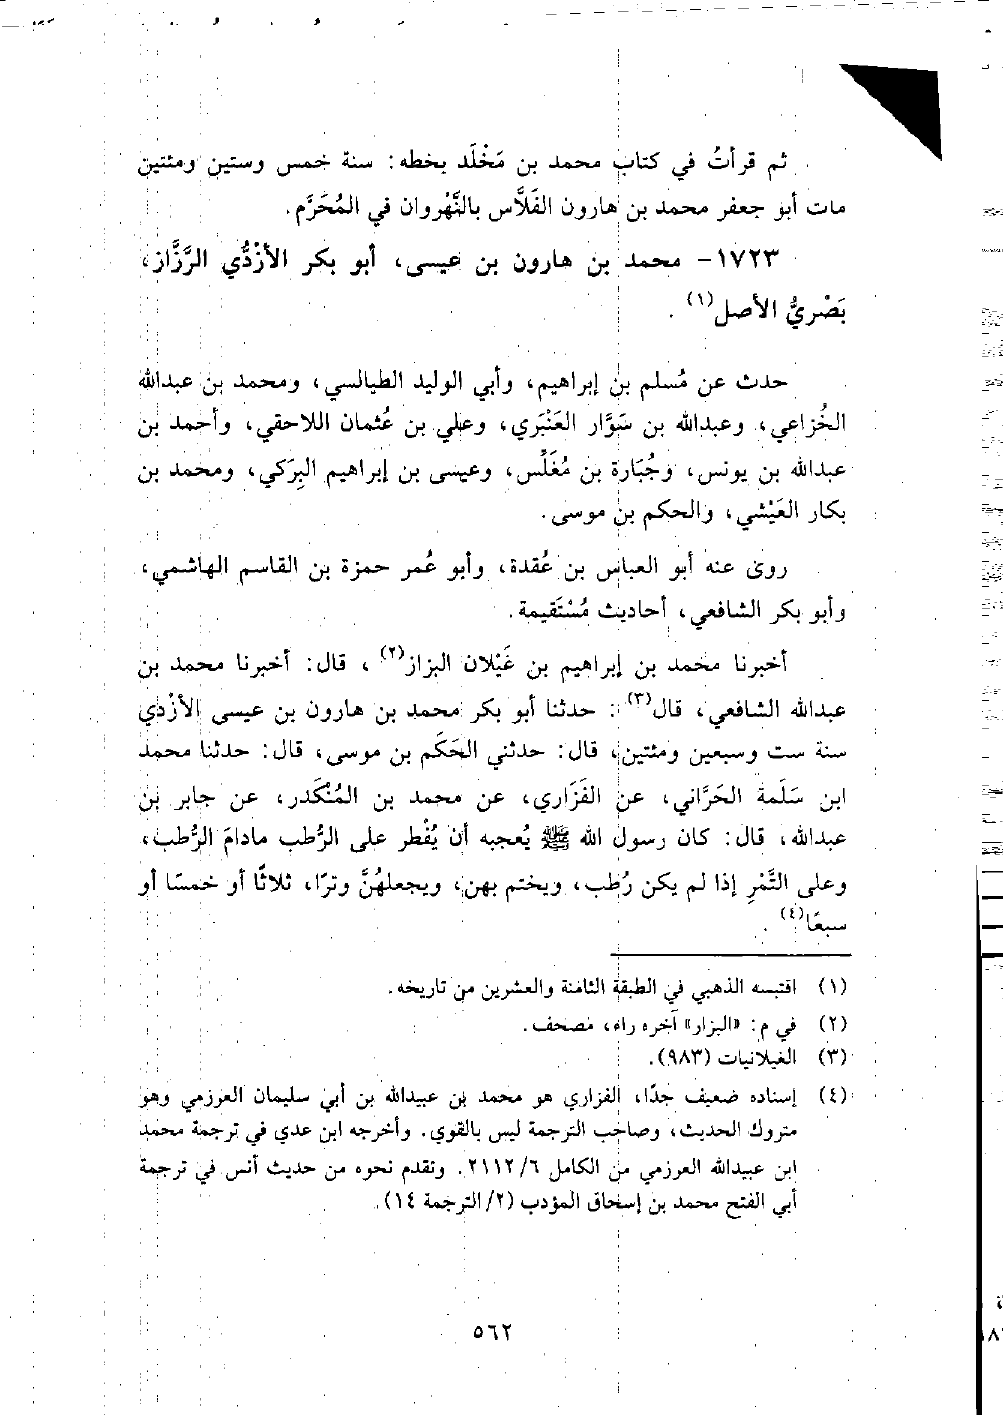 ثم قرأتُ في كتاب محمد بن مَخْلَد بخطه: سنة خمس وستين ومئتين
مات أبو جعفر محمد بن هارون الفَلاَّس بالنَّهْروان في المُحَرَّم.
١٧٢٣- محمد بن هارون بن عيسى، أبو بكر الأزْدُّي الرَّزَّاز،
بَصْريُّ الأصل(١) .
حدث عن مُسلم بن إبراهيم، وأبي الوليد الطيالسي، ومحمد بن عبدالله
الخُزاعي، وعبدالله بن سَوَّار العَنْبَري، وعلي بن عُثمان اللاحقي، وأحمد بن
عبدالله بن يونس، وجُبَارة بن مُغَلِّس، وعيسى بن إبراهيم البِرَكي، ومحمد بن
بكار العَيْشي، والحكم بن موسى.
روى عنه أبو العباس بن عُقدة، وأبو عُمر حمزة بن القاسم الهاشمي،
وأبو بكر الشافعي، أحاديث مُسْتَقيمة.
أخبرنا محمد بن إبراهيم بن غَيْلان البزاز(٢) ، قال: أخبرنا محمد بن
عبدالله الشافعي، قال(٣) : حدثنا أبو بكر محمد بن هارون بن عيسى الأزْدي
سنة ست وسبعين ومئتين، قال: حدثني الحَكَم بن موسى، قال: حدثنا محمد
ابن سَلَمة الحَرَّاني، عن الفَزَاري، عن محمد بن المُنْكَدر، عن جابر بن
عبدالله، قال: كان رسول الله ﷺ يُعجبه أن يُفْطر على الرُّطب مادامَ الرُّطب،
وعلى التَّمْرِ إذا لم يكن رُطب، ويختم بهن، ويجعلهُنَّ وترًا، ثلاثًا أو خمسًا أو
سبعًا(٤) .
(١) اقتبسه الذهبي في الطبقة الثامنة والعشرين من تاريخه.
(٢) في م: «البزار» آخره راء، مصحف.
(٣) الغيلانيات (٩٨٣).
(٤) إسناده ضعيف جدًا، الفزاري هو محمد بن عبيدالله بن أبي سليمان العرزمي وهو
متروك الحديث، وصاحب الترجمة ليس بالقوي. وأخرجه ابن عدي في ترجمة محمد
ابن عبيدالله العرزمي من الكامل ٦/ ٢١١٢. وتقدم نحوه من حديث أنس في ترجمة
أبي الفتح محمد بن إسحاق المؤدب (٢/ الترجمة ١٤).
٥٦٢